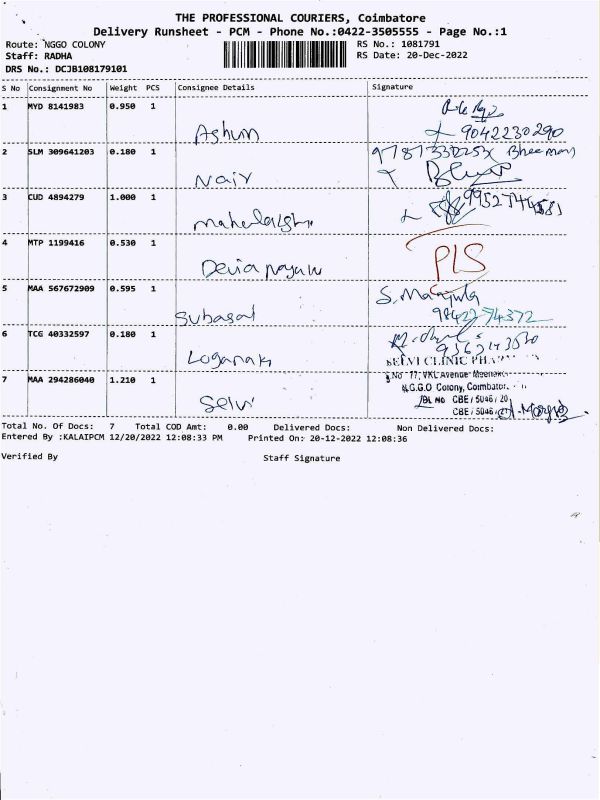 THE PROFESSIONAL COURIERS, Coimbatore
Delivery Runsheet - PCM - Phone No.:0422-3505555 - Page No.:1
Route: NGGO COLONY RS No.: 1081791
Staff: RADHA RS Date: 20-Dec-2022
DRS No.: DCJB108179101
S No Consignment No Weight PCS Consignee Details Signature
1 MYD 8141983 0.950 1
Ashum 9042230290
2 SLM 309641203 0.180 1 Bheeman
Nair
3 CUD 4894279 1.000 1
4 MTP 1199416 0.530 1 PLS
5 MAA 567672909 0.595 1 S. Manjula
Subasal
6 TCG 40332597 0.180 1
Loganak SELVI CLINIC
7 MAA 294286040 1.210 1 77, VKL Avenue
N.G.G.O Colony, Coimbator
Selvi DL No CBE / 5046 / 20
CBE / 5046 /
Total No. Of Docs: 7 Total COD Amt: 0.00 Delivered Docs: Non Delivered Docs:
Entered By :KALAIPCM 12/20/2022 12:08:33 PM Printed On: 20-12-2022 12:08:36
Verified By Staff Signature